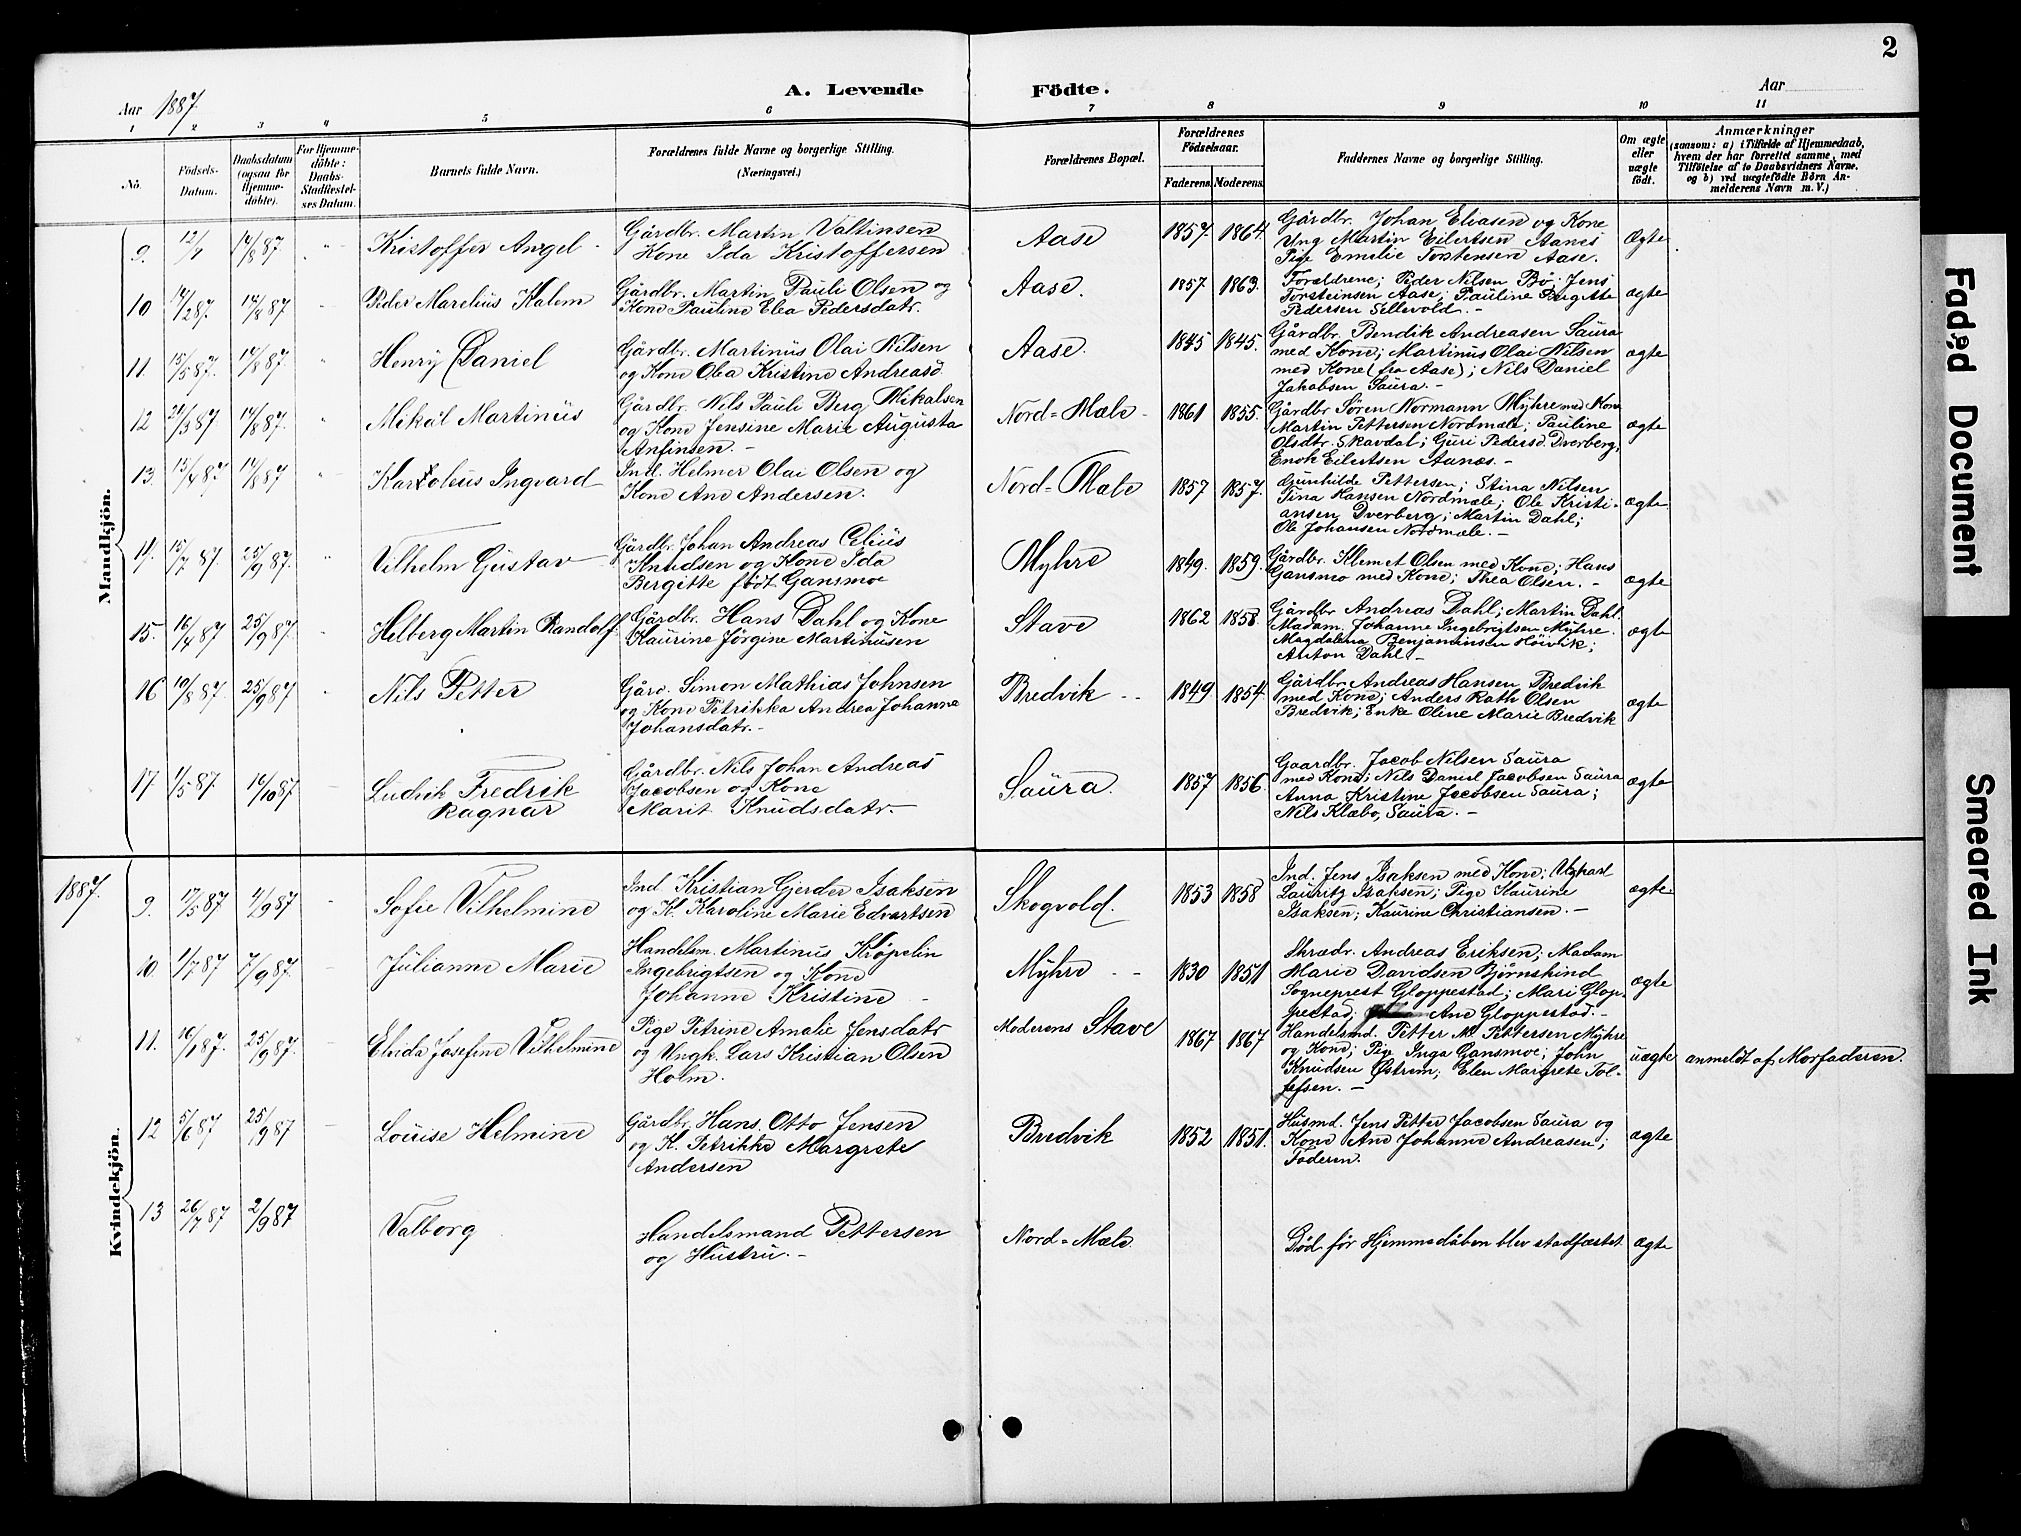 2
A. Levende Födte.
Aar 1887.
Aar
1 2 3 4 5 6 7 8 9 10 11
No.
Födsels-Datum.
Daabsdatum (ogsaa for Hjemme-döbte).
For Hjemme-döbte: Daabs-Stadfæstel-ses Datum.
Barnets fulde Navn.
Forældrenes fulde Navne og borgerlige Stilling.
(Næringsvei.)
Forældrenes Bopæl.
Forældrenes Födselsaar.
Faderens. Moderens.
Faddernes Navne og borgerlige Stilling.
Om ægte eller uægte födt.
Anmærkninger
(saasom: a) i Tilfælde af Hjemmedaab,
hvem der har forrettet samme, med
Tilföielse af to Daabsvidners Navne,
og b) ved uægtefödte Börn An-
melderens Navn m. V.)
Mandkjön.
9. 12/7 14/8 87. Kristoffer Angel Gårdbr. Martin Valtinsen
Kone Ida Kristoffersen
Aase 1857. 1864. Gårdbr. Johan Eliasen og Kone
Ung Martin Eilertsen Aanes
Pige Emilie Torstensen Aase.
Ægte
10 14/2 87. 14/8 87 Peder Marelius Kalem Gårdbr. Martin Pauli Olsen og
Kone Pauline Elea Pedersdatr.
Aase. 1857 1863. Forældrene; Peder Nilsen Bø; Jens
Torsteinsen Aase; Pauline Birgitte
Pedersen Sellevold. -
ægte
11. 15/5 87. 14/8 87. Henry Daniel Gårdbr. Martinus Olai Nilsen
og Kone Olea Kristine Andreasd.
Aase. 1845 1845. Gårdbr. Bendik Andreasen Saura
med Kone; Martinus Olai Nilsen
med Kone (fra Aase); Nils Daniel
Jakobsen Saura. -
ægte
12 20/3 87. 14/8 87. Mikal Martinus Gårdbr. Nils Pauli Berg Mikalsen
og Kone Jensine Marie Augusta
Anfinsen. -
Nord=Mæle 1861 1855. Gårdbr Søren Normann Myhre med Kone
Martin Pettersen Nordmæle; Pauline
Olsdtr. Skavdal; Guri Pedersd. Dverberg;
Enok Eilertsen Aanes. -
ægte
13. 15/4 87 14/8 87 Karoleus Ingvard Ind. Helmer Olai Olsen og
Kone Ane Andersen.
Nord=Mæle 1857 1857. Gunhilde Pettersen; Stina Nilsen
Tina Hansen Nordmæle; Ole Kristi-
ansen Dverberg; Martin Dahl;
Ole Johansen Nordmæle. -
ægte
14. 15/7 87. 25/9 87. Vilhelm Gustav Gårdbr. Johan Andreas Celius
Knudsen og Kone Ida
Bergitte født Gansmoe
Myhre 1849. 1859. Gårdbr. Klemet Olsen med Kone; Hans
Gansmo med Kone; Thea Olsen. -
ægte
15. 16/4 87 25/9 87. Helberg Martin Randolf Gårdbr. Hans Dahl og Kone
Kaurine Jørgine Martinusen
Stave 1862 1858. Gårdbr Andreas Dahl; Martin Dahl.
Madam. Johanne Ingebrigtsen Myhre.
Magdalena Benjaminsen Höivik;
Anton Dahl -
ægte
16 19/8 87. 25/9 87 Nils Petter Gård. Simon Mathias Johnsen
og Kone Petrikka Andrea Johanna
Johansdatr. -
Bredvik 1849 1854. Gårdbr Andreas Hansen Bredvik
med Kone; Anders Rath Olsen
Bredvik; Enke Oline Marie Bredvik
ægte
17. 1/5 87. 16/10 87. Ludvik Fredrik
Ragnar
Gårdbr. Nils Johan Andreas
Jacobsen og Kone
Marit Knudsdatr. -
Saura. 1857 1856. Gaardbr. Jacob Nilsen Saura
med Kone; Nils Daniel Jacobsen Saura
Anna Kristine Jacobsen Saura;
Nils Klæbo, Saura. -
ægte
1887.
Kvindekjön.
9. 17/5 87 4/9 87 Sofie Vilhelmine Ind. Kristian Gjerder Isaksen
og K. Karoline Marie Edvartsen
Skogvold. 1853 1858 Ind. Jens Isaksen med Kone; Ugkarl
Lauritz Isaksen; Pige Kaurine
Isaksen; Kaurine Christiansen. -
ægte
10. 1/7 87 7/9 87. Julianne Marie Handelsm. Martinus Krøpelin
Ingebrigtsen og Kone
Johanne Kristine -
Myhre 1830 1851 Skrædr. Andreas Eriksen; Madam
Marie Davidsen Bjørnskind
Sogneprest Gloppestad; Mari Glop-
pestad; Ane Gloppestad. -
ægte
11. 16/1 87. 25/9 87. Elvida Josefine Vilhelmine Pige Petrine Amalie Jensdatr
og Ungk. Lars Kristian Olsen
Holm.
Moderens Stave 1867 1867 Handelsmd. Petter M. Pettersen Myhre
og Kone; Pig. Inga Gansmoe; John
Knudsen Østrem; Elen Margrete Tol-
lefsen. -
uægte anmeldt af Morfaderen.
12 5/6 87 25/9 87 Louise Helmine Gårdbr. Hans Otto Jensen
og K. Petrikke Margrete
Andersen
Bredvik 1852 1851. Husmd. Jens Petter Jacobsen Saura og
Kone Ane Johanne Andreasen;
Faderen.
ægte
13 26/7 87 2/9 87 Valborg Handelsmand Pettersen
og Hustru. -
Nord=Mæle. Død før Hjemmedåben blev stadfæstet ægte
Faded Document
Smeared Ink